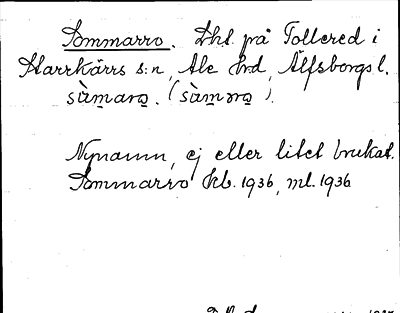 Sommarro. Lht. på Tollered i
Starrkärrs s:n, Ale hrd, Älfsborgs l.
sùmarọ. (sùmrọ).
Nynamn, ej eller litet brukat.
Sommarro kb. 1936, ml. 1936